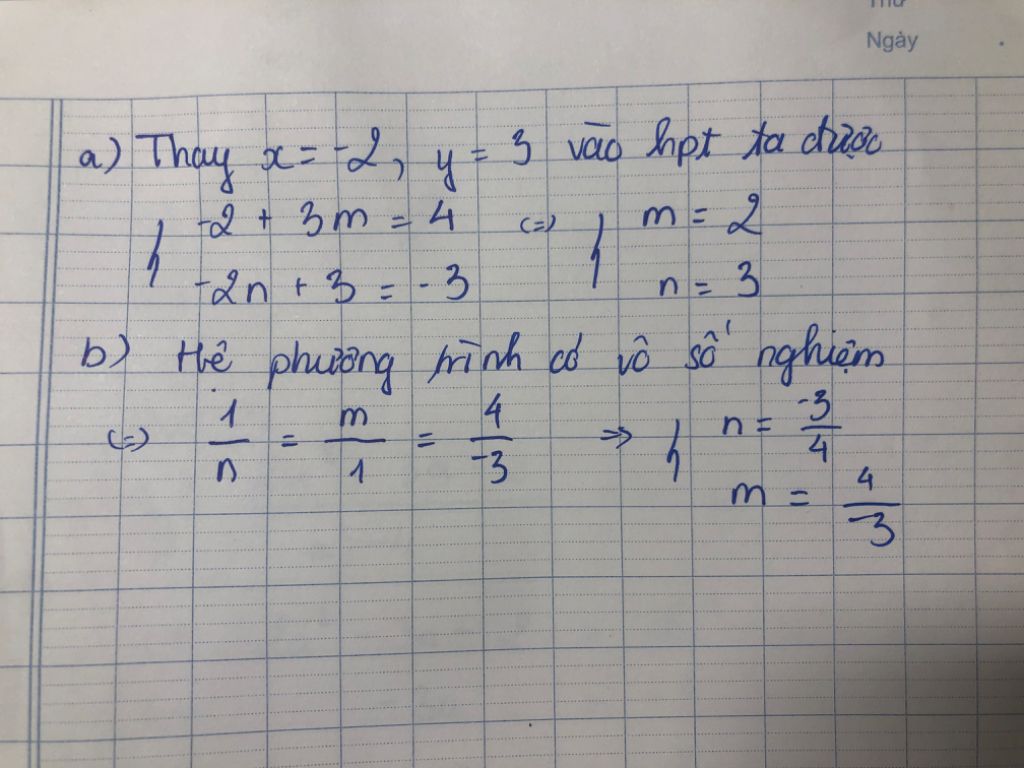 Thứ
Ngày
a) Thay x = -2, y = 3 vào hpt ta được
{ -2 + 3m = 4 (=) { m = 2
-2n + 3 = -3 n = 3
b) Hệ phương trình có vô số nghiệm
(=) 1/n = m/1 = 4/-3 => { n = -3/4
m = 4/-3